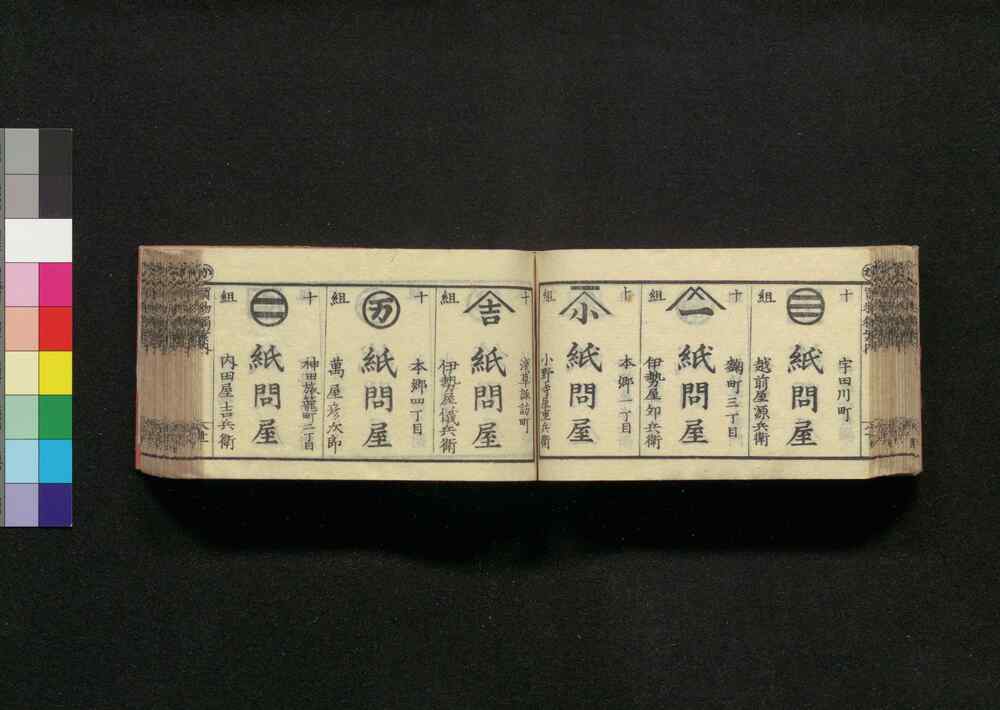 十
組
三
紙問屋
宇田川町
越前屋源兵衛
十
組
一
紙問屋
麹町三丁目
伊勢屋卯兵衛
十
組
小
紙問屋
本郷一丁目
小野寺屋重兵衛
十
組
吉
紙問屋
浅草諏訪町
伊勢屋儀兵衛
十
組
万
紙問屋
本郷四丁目
萬屋彦次郎
十
組
二
紙問屋
神田旅籠町二丁目
内田屋吉兵衛